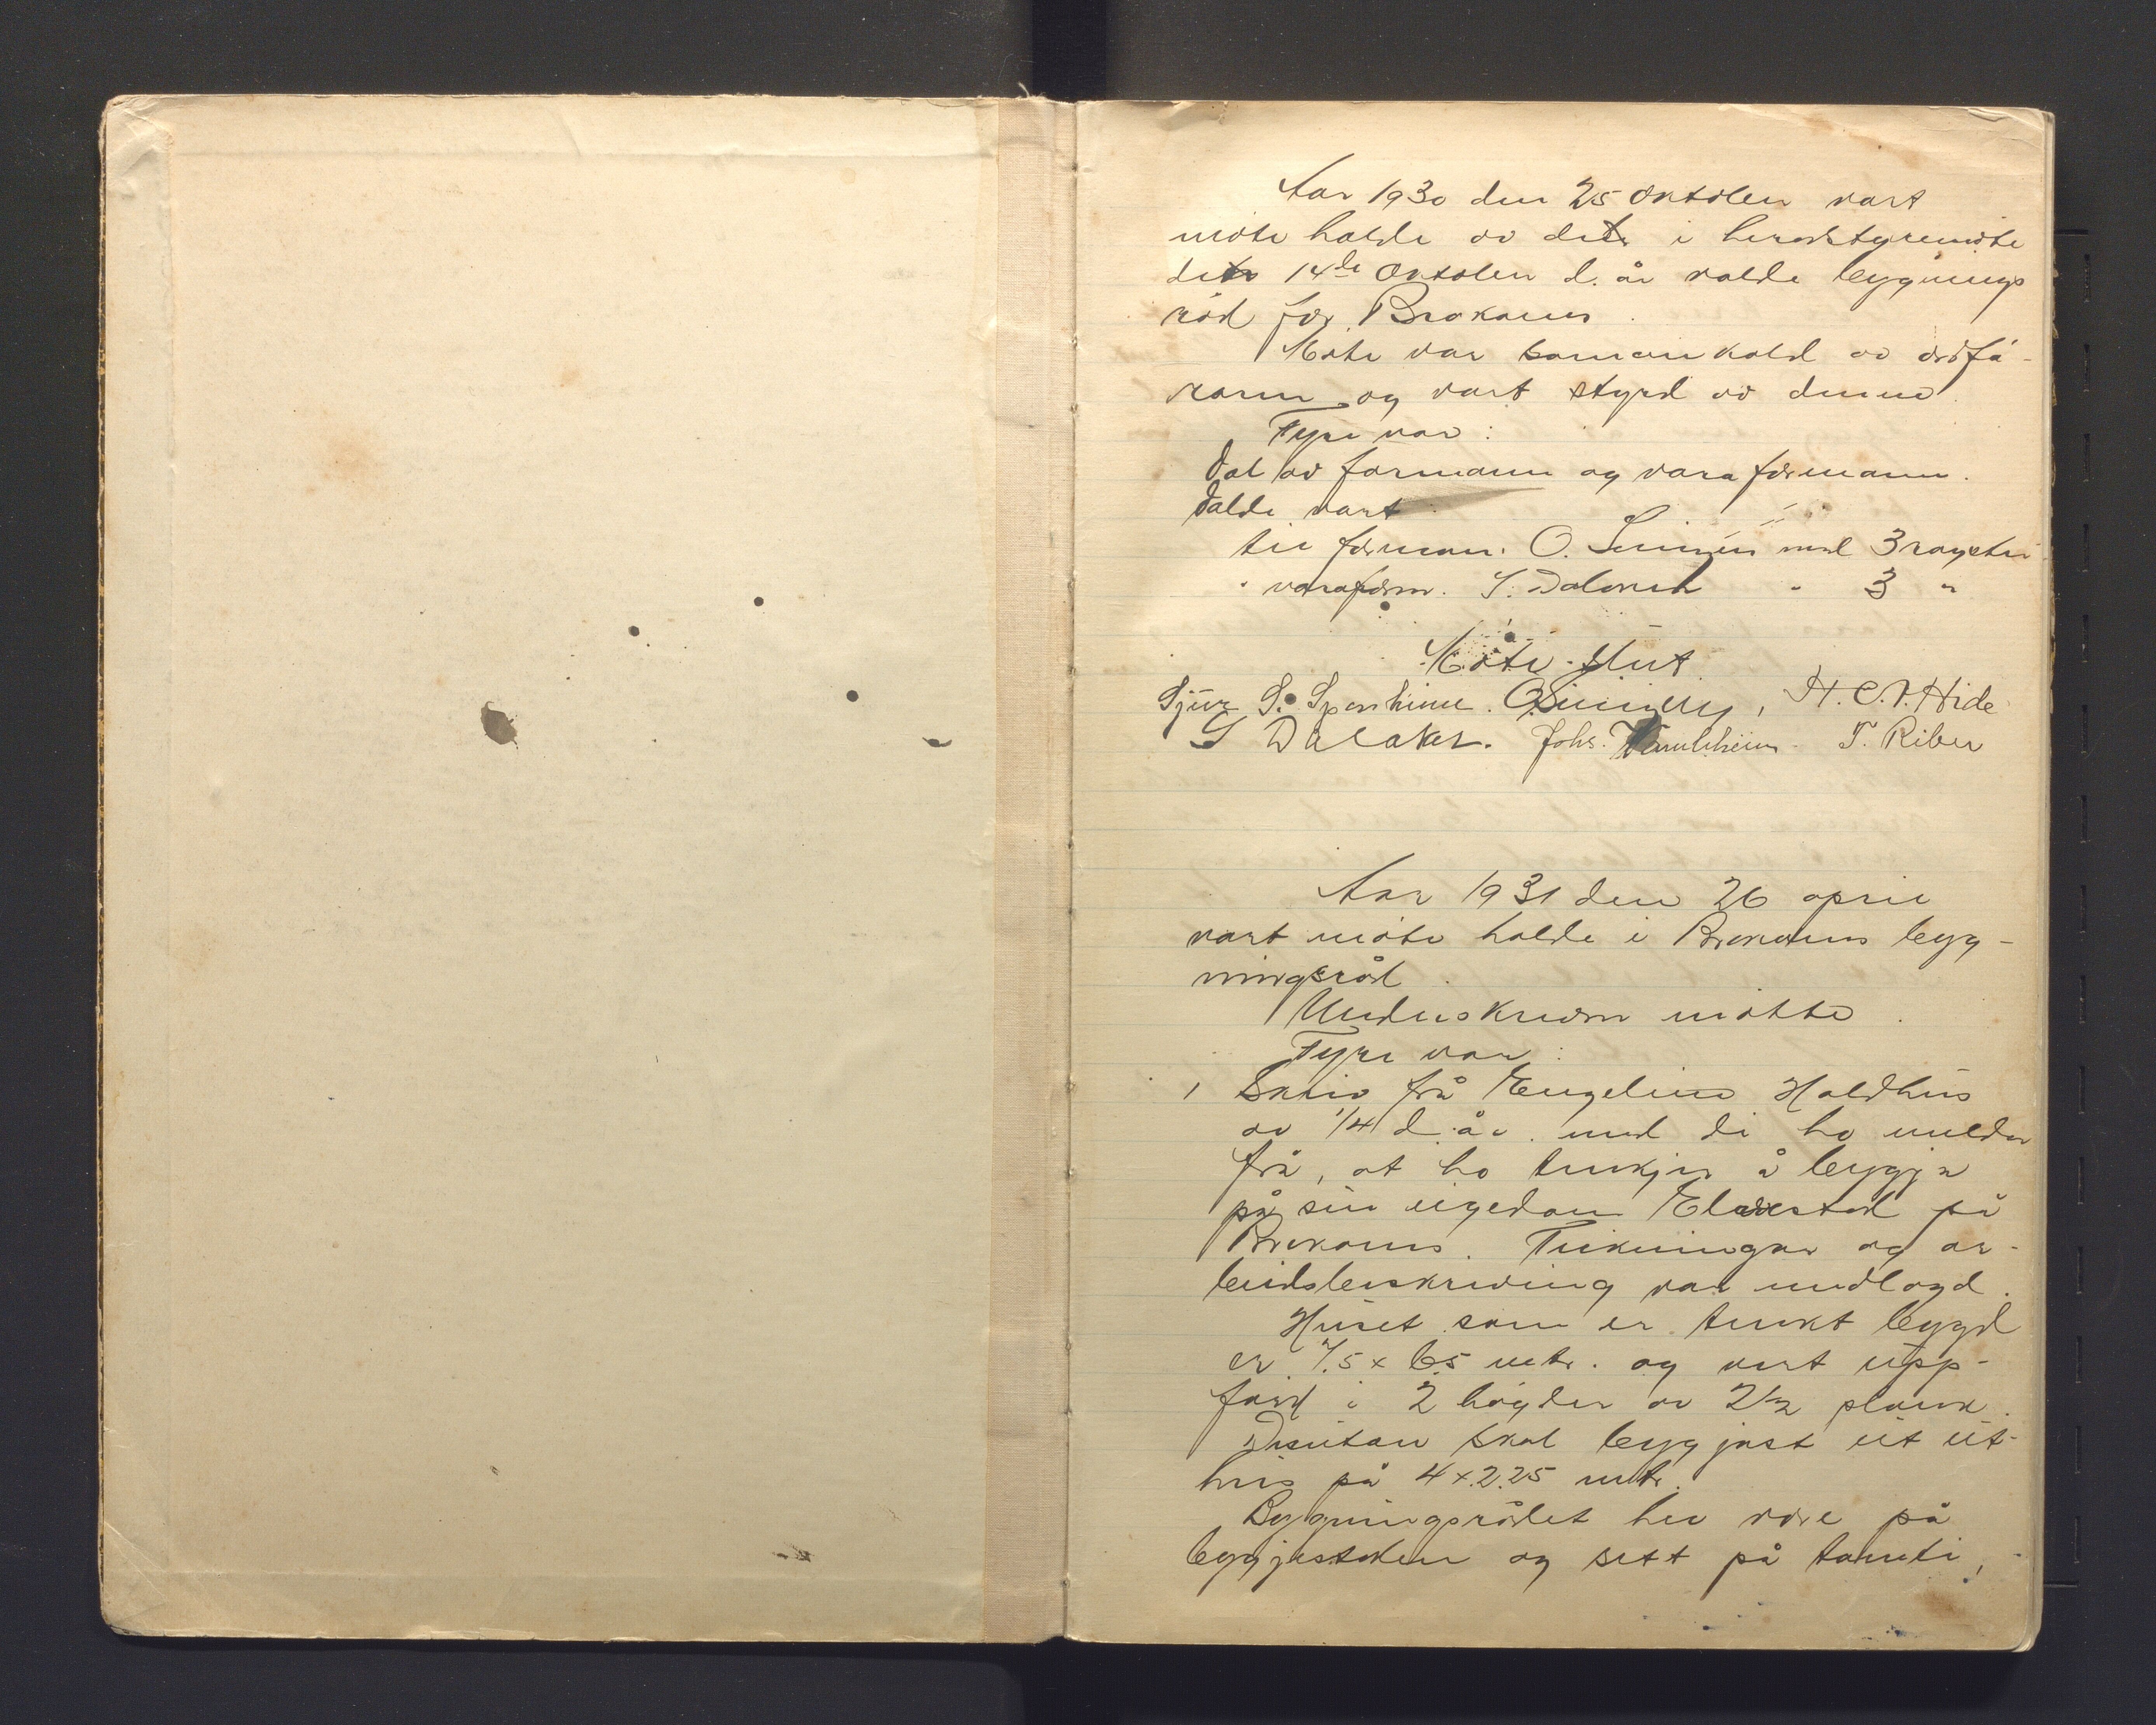 Aar 1930 den 25 oktober vart
møte halde av det i heradstyremøte
det 14de oktober d. år valde bygnings
råd for Brakanes.
Møte var samankald av ordfø-
raren og vart styrd av denne.
Fyre var:
Val av formann og vara formann.
Valde vart:
til forman. O. med 3 røyster
" varaform. S. Dalaker " 3 "
Møte slut.
Sjur S. Sponheim. H. C. V. Hide
S Dalaker. Johs. T. Riber
Aar 1931 den 26 april
vart møte halde i Brakanes byg-
ningsråd.
Underskrivne møtte.
Fyre var:
1 Skriv frå Engeline Haldhus
av 1/4 d. år. med di ho melder
frå, at ho tenkjer å byggja
på sin eigedom på
Brakanes. Teikningar og ar-
beidsbeskriving var medlagd.
Huset som er tenkt bygd
er 7.5 x 6.5 mtr. og vert upp-
ført i 2 høgder av 2½ plank.
Desutan skal byggjast eit ut-
hus på 4 x 2.25 mtr.
Bygningsrådet hev vore på
byggjestaden og sett på tomti,